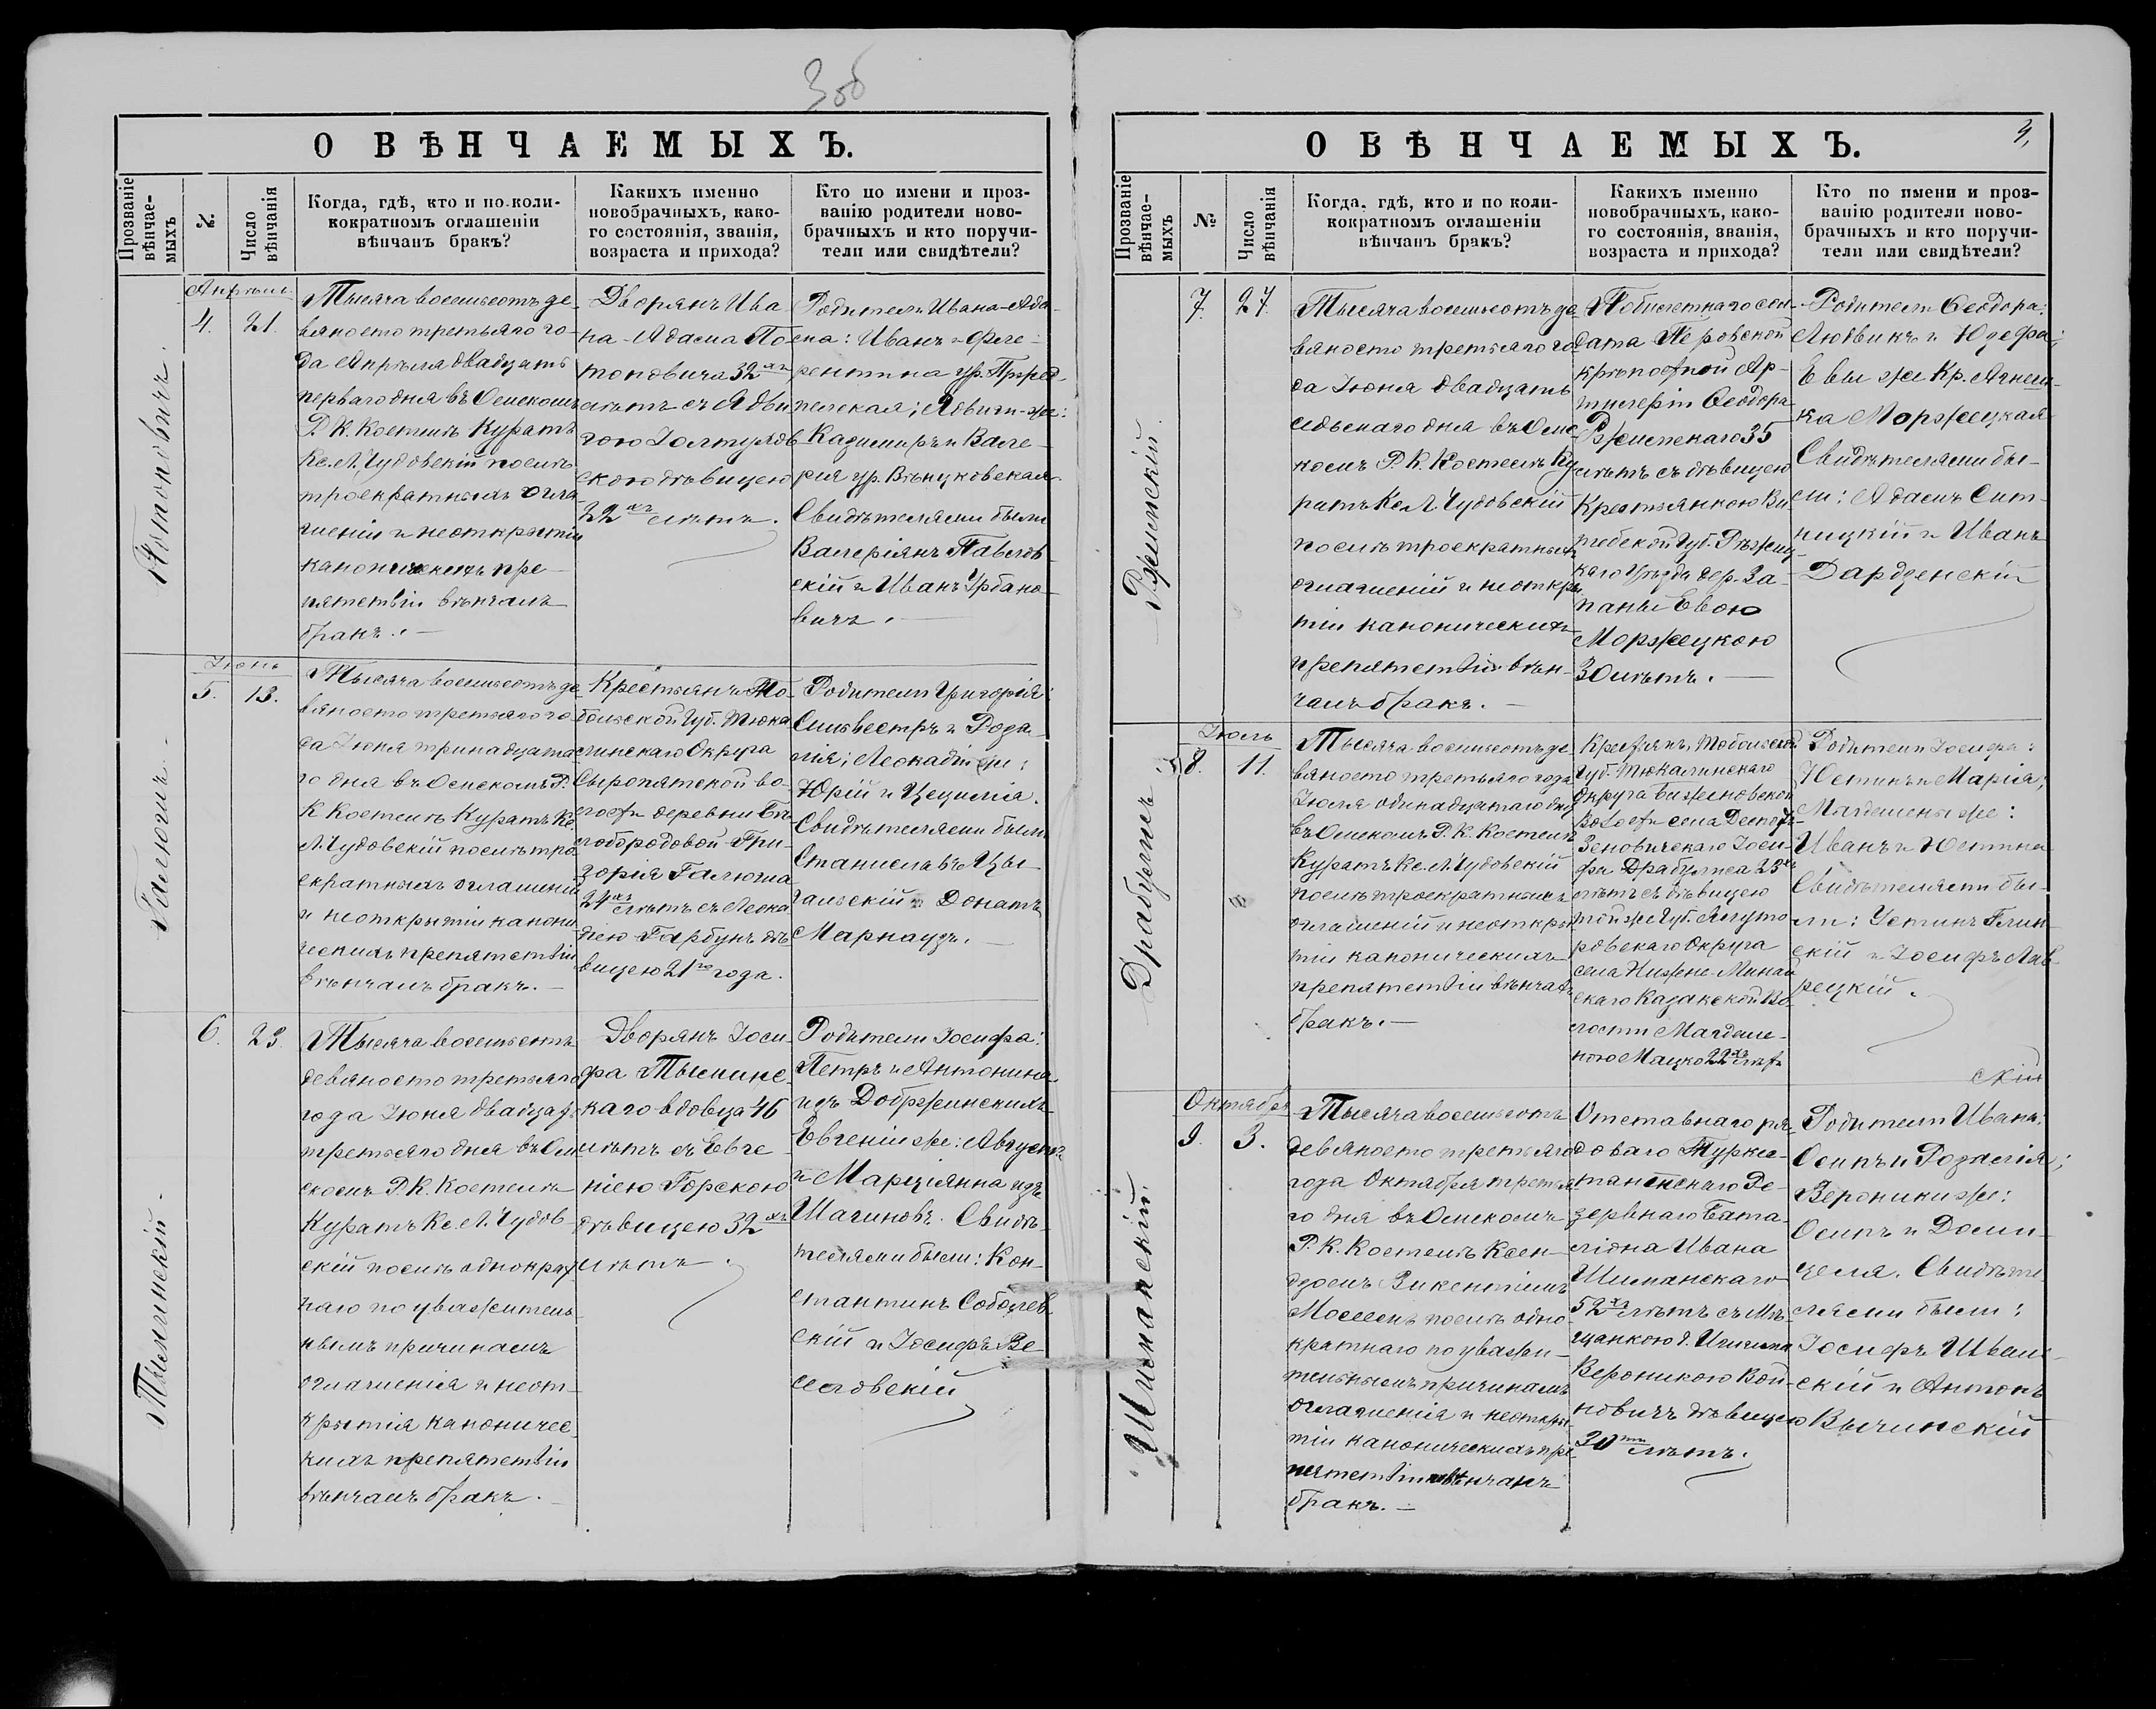 3об
О ВѢНЧАЕМЫХЪ.
Прозваніе вѣнчае-мыхъ
№.
Число вѣнчанія
Когда, гдѣ, кто и по коли-
кократномъ оглашеніи
вѣнчанъ бракъ?
Какихъ именно
новобрачныхъ, како-
го состоянія, званія,
возраста и прихода?
Кто по имени и проз-
ванію родители ново-
брачныхъ и кто поручи-
тели или свидѣтели?
Апрѣль
4. 21.
Тысяча восемьсотъ де-
вяносто третьяго го-
да Апрѣля двадцать
перваго дня въ Омскомъ
Р. К. Костелѣ Куратъ
Кс. Л. Чудовскій послѣ
троекратныхъ огла
шеній и неоткрытіи
каноническихъ пре-
пятствій вѣнчалъ
бракъ. —
Дворянъ Ива
на-Адама По
тоновича 32хъ
лѣтъ съ Ядви
гою Іолтуховс
скою дѣвицею
22хъ лѣтъ.
Родители Ивана-Ада-
ма: Иванъ и Фло-
рентина ур. Пржед-
пелская; Ядвиги-же:
Казиміръ и Вале-
рія ур. Вѣнцковская.
Свидѣтелями были
Валеріянъ Павлов-
скій и Иванъ Урбано-
вичъ. —
Іюнь
5. 13.
Галюша.
Тысяча восемьсотъ де
вяносто третьяго го-
да Іюня тринадцата
го дня въ Омскомъ Р.
К Костелѣ Куратъ Кс.
Л. Чудовскій послѣ тро
екратныхъ оглашеній
и неоткрытіи канони
ческихъ препятствій
вѣнчалъ бракъ. —
Крестьянъ То-
больской Губ. Тюка
линскаго Округа
Сыропятской во-
лости деревни Бѣ-
лобородовой Гри-
горія Галюша
24хъ лѣтъ съ Леока
діею Гарбунъ дѣ
вицею 21го года.
Родители Григорія:
Сильвестръ и Роза-
лія; Леокадіи же:
Юрій и Цецилія.
Свидѣтелями были
Станиславъ Цы-
гальскій и Донатъ
Марнаузъ. —
6. 23.
Тысяча восемьсотъ
девяносто третьяго
года Іюня двадцать
третьяго дня въ Ом
скомъ Р. К. Костелѣ
Куратъ Кс. Л. Чудов-
скій послѣ однократ
наго по уважитель
нымъ причинамъ
оглашенія и неот-
крытія каноничес-
кихъ препятствій
вѣнчалъ бракъ. —
Дворянъ Іоси
фа Тыминс-
каго вдовца 46
лѣтъ съ Евге
ніею Горскою
дѣвицею 32хъ
лѣтъ.
Родители Іосифа:
Петръ и Антонина
изъ Добржинскихъ
Евгеніи же: Августъ
и Марціянна изъ
Шагиновъ. Свидѣ-
телями были: Кон-
стантинъ Соболев
скій и Іосифъ Ве-
селовскій
3,
О ВѢНЧАЕМЫХЪ.
Прозваніе вѣнчае-мыхъ
№
Число вѣнчанія
Когда, гдѣ, кто и по коли-
кократномъ оглашеніи
вѣнчанъ бракъ?
Какихъ именно
новобрачныхъ, како-
го состоянія, званія,
возраста и прихода?
Кто по имени и проз-
ванію родители ново-
брачныхъ и кто поручи-
тели или свидѣтели?
7. 27.
Тысяча восемьсотъ де
вяносто третьяго го
да Іюня двадцать
седьмаго дня въ Омс
комъ Р. К. Костелѣ Ку
ратъ Кс Л. Чудовскій
послѣ троекратныхъ
оглашеній и неоткры
тіи каноническихъ
препятствій вѣн-
чалъ бракъ. —
Побилетнаго сол-
дата Перовской
крѣпостной Ар-
тилеріи Ѳеодора
35
лѣтъ съ дѣвицею
Крестьянкою Ви
тебской Губ. Рѣжиц
каго Уѣзда дер. За-
паны Евою
Моржецкою
30 лѣтъ. —
Родители Ѳеодора:
Людвикъ и Юзефа;
Евы же Кр. Агнеш-
ка Моржецкая
Свидѣтелями бы-
ли: Адамъ Сит-
ницкій и Иванъ
Дардзенскій
Іюль
8. 11.
Драбулисъ.
Тысяча восемьсотъ де
вяносто третьяго года
Іюля одинадцатаго дня
въ Омскомъ Р. К. Костелѣ
Куратъ Кс. Л. Чудовскій
послѣ троекратныхъ
оглашеній и неоткры
тіи каноническихъ
препятствій вѣнчалъ
бракъ. —
Крестьянъ Тобольской
Губ. Тюкалинскаго
Округа Баженовской
Волости села
Іоси-
фа Драбулиса 23хъ
лѣтъ съ дѣвицею
той же Губ. Ялуто
ровскаго Округа
села Нижне-Минай
скаго Казанской Во-
лости Магдале-
ною Мацко 22хъ лѣтъ
Родители Іосифа:
Юстинъ и Марія;
Магдалены же:
Иванъ и Юстина
Свидѣтелями бы-
ли: Устинъ Глин-
скій и Іосифъ Лав-
рецкій.
скій
Октябрь
9. 3.
Шиманскій
Тысяча восемьсотъ
девяносто третьяго
года Октября третья
го дня въ Омскомъ
Р. К. Костелѣ Ксен-
дзомъ Викентіемъ
послѣ одно
кратнаго по уважи-
тельнымъ причинамъ
оглашенія и неоткры-
тіи каноническихъ пре
пятствій вѣнчанъ
бракъ. —
Отставнаго ря
доваго Туркес-
танскаго Ре-
зервнаго Бата
ліона Ивана
Шиманскаго
52хъ лѣтъ съ Мѣ-
щанкою г. Ишима
Вероникою Вой-
новичъ дѣвицею
30ти лѣтъ.
Родители Ивана:
Осипъ и Розалія;
Вероники же:
Осипъ и Доми-
целя. Свидѣте-
лями были:
Іосифъ Иван-
скій и Антонъ
Вычинскій